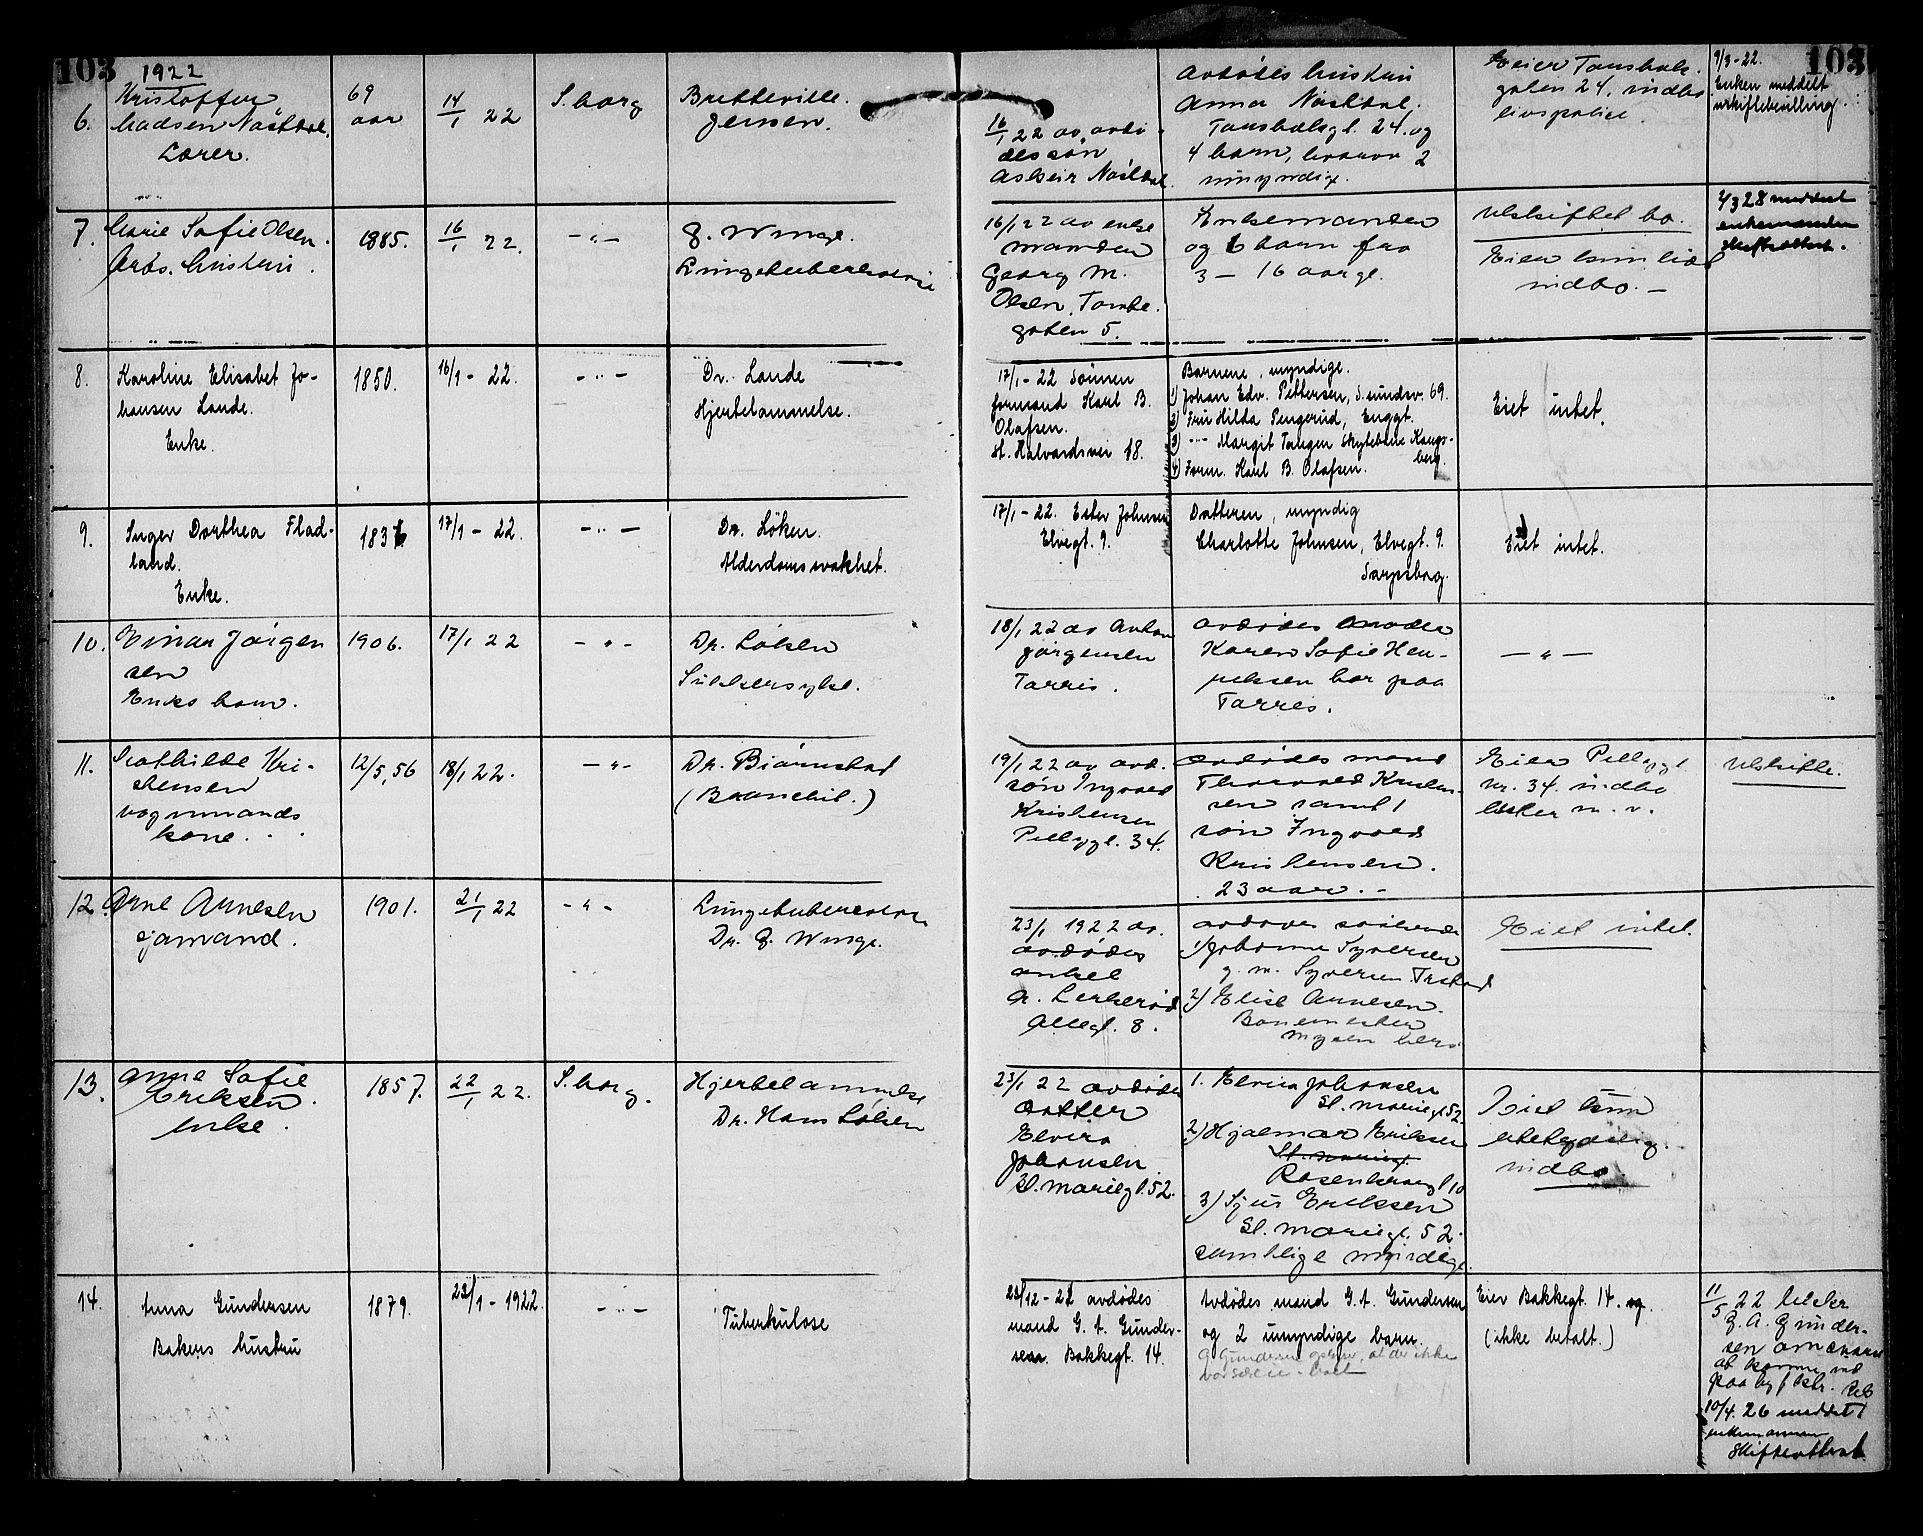 103
103
1922
6.
Kristoffer
Madsen Nastdal.
Lærer.
69
aar
14/1 22
S.borg
Bretteville.
Jensen.
16/1 22 av avdø-
des søn
Asbeir Nastdal.
avdødes hustru
Anna Nastdal.
24. og
4 barn, hvorav 2
umyndige.
Eier
gaten 24. indbo
livspolice.
9/3-22.
Enken meddelt
uskiftebevilling.
7.
Marie Sofie Olsen.
Arbs. hustru.
1885.
16/1 22.
—"—
G. Winge.
Lungetuberkulose
16/1 22 av enke
manden
Georg M.
Olsen, Tombe-
gaten 5.
Enkemanden
og 6 barn fra
3 — 16 aar gl.
Uskiftet bo.
Eier kun lidt
indbo. —
28 meddelt
enkemanden
skifteattest.
8.
Karoline Elisabet Jo-
hansen Lande.
Enke.
1850.
16/1 - 22.
—"—
Dr. Lande
Hjertelammelse.
17/1 - 22 Sønnen
formand Karl B.
Olafsen.
St. Halvardsvei 18.
Barnene, myndige.
1) Johan Edv. Pettersen, S. sundsv. 69.
2) Fru Hilda Pengerud, Enggt.
3) —"— Margit Tangen Skytebane Kongs-
berg.
4) Form. Karl B. Olafsen.
Eiet intet.
9.
Inger Dorthea Flad-
land.
Enke.
17/1 - 22.
—"—
Dr. Løken.
Alderdomssvakhet.
17/1 - 22. Ester Johnsen
Elvegt. 9.
Datteren, myndig
Charlotte Johnsen, Elvegt. 9.
Sarpsborg.
Eiet intet.
10.
Einar Jørgen
sen
Enkes barn.
1906.
17/1 22
—"—
Dr. Løken
Sukkersyke.
18/1 22 av Anton
Jørgensen
Tarris.
avdødes moder
Karen Sofie Hen-
riksen bor paa
Tarres.
—"—
11.
Mathilde Kri-
stensen
vognmands
kone.
12/5, 56
18/1 22.
—"—
Dr. Biørnstad
(Bronchit.)
19/1 22 av avd.
søn Ingvald
Kristensen
Pellygt. 34.
avdødes mand
Thorvald Kristen-
sen samt 1
søn Ingvald
Kristensen.
23 aar. -
Eier Pellygt.
nr. 34. indbo
hester m. v.
Uskifte.
12.
Arne Arnesen
sjømand.
1901.
21/1 22
—"—
Lungetuberkulose
Dr. G. Winge.
23/1 1922 av.
avdødes
onkel
Lerkerød
Allegt. 8.
avdødes søskende
1) Johanne Syversen
g. m. Syversen.
2) Elise Arnesen.
Eiet intet.
13.
Anne Sofie
Eriksen.
enke.
1857.
22/1 22.
S.borg.
Hjertelammelse
Dr. Hans Løken
23/1 22 avdødes
datter
Elvira
Johansen
St. Mariegt. 52.
1. Elvira Johansen
St. Mariegt 52.
2) Hjalmar Eriksen
St. Mariegt.
Rosenkransgt 10
3) Eriksen
St. Mariegt. 52.
samtlige myndige.
Eiet kun
ubetydelig
indbo
14.
Anna Gundersen
Bakers hustru
1879.
22/1 - 1922.
—"—
Tuberkulose
avdødes
mand G. A. Gunder-
sen. Bakkegt. 14.
Avdødes mand G. A. Gundersen
og 2 umyndige barn.
G. Gundersen opl. at der ikke
Eier Bakkegt. 14. og
(ikke betalt.)
11/5 22
G. A. Gunder-
sen
at komme ind
10/4. 26 meddelt
enkemannen
Skifteattest